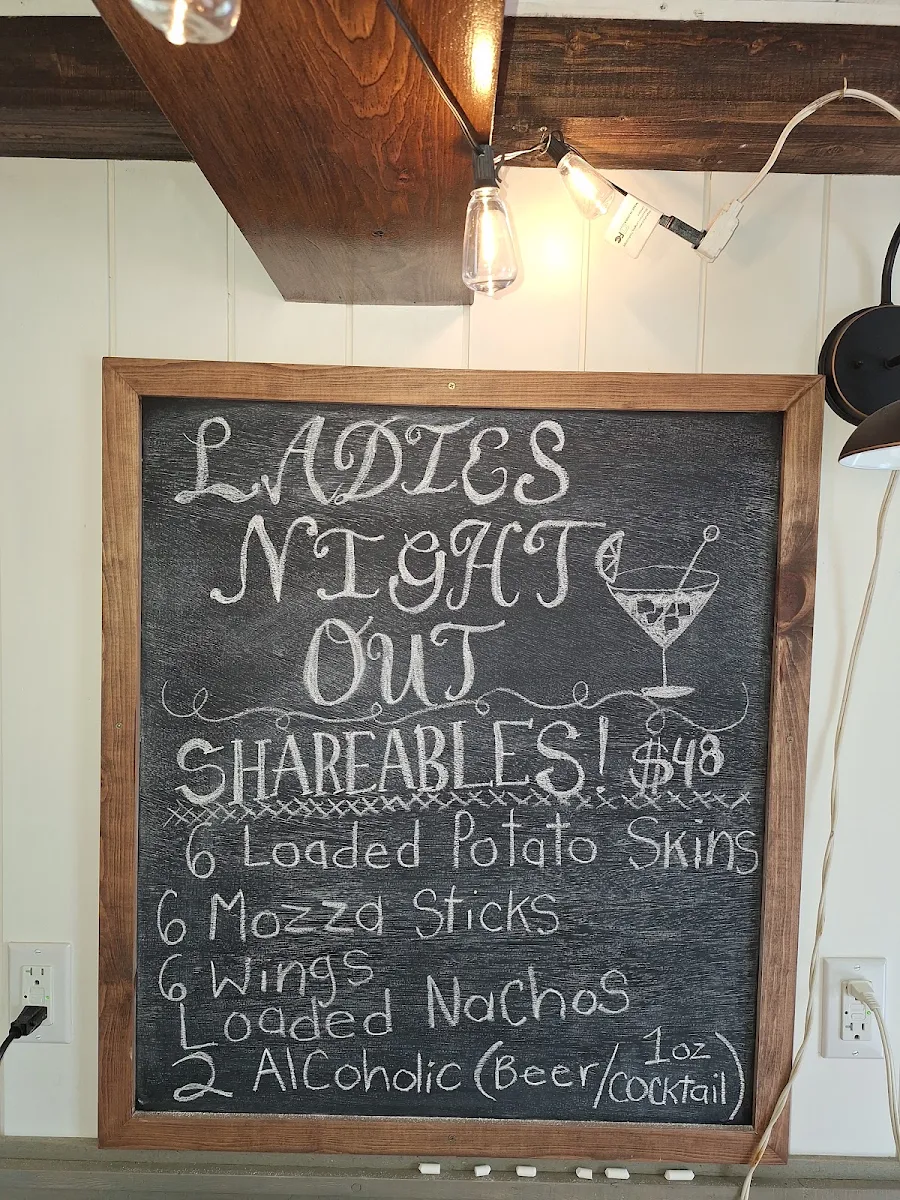 LADIES
NIGHT
OUT
SHAREABLES! $48
6 Loaded Potato Skins
6 Mozza Sticks
6 Wings
Loaded Nachos
2 Alcoholic (Beer/1oz cocktail)